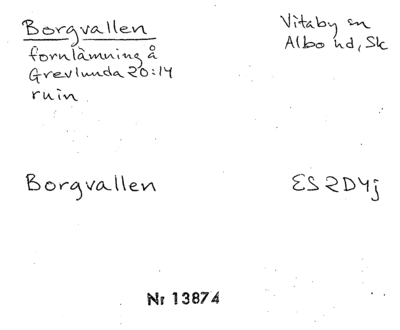 Borgvallen
fornlämning å
Grevlunda 20:14
ruin
Vitaby sn
Albo hd, Sk
Borgvallen
ES 2D4j
Nr 13874